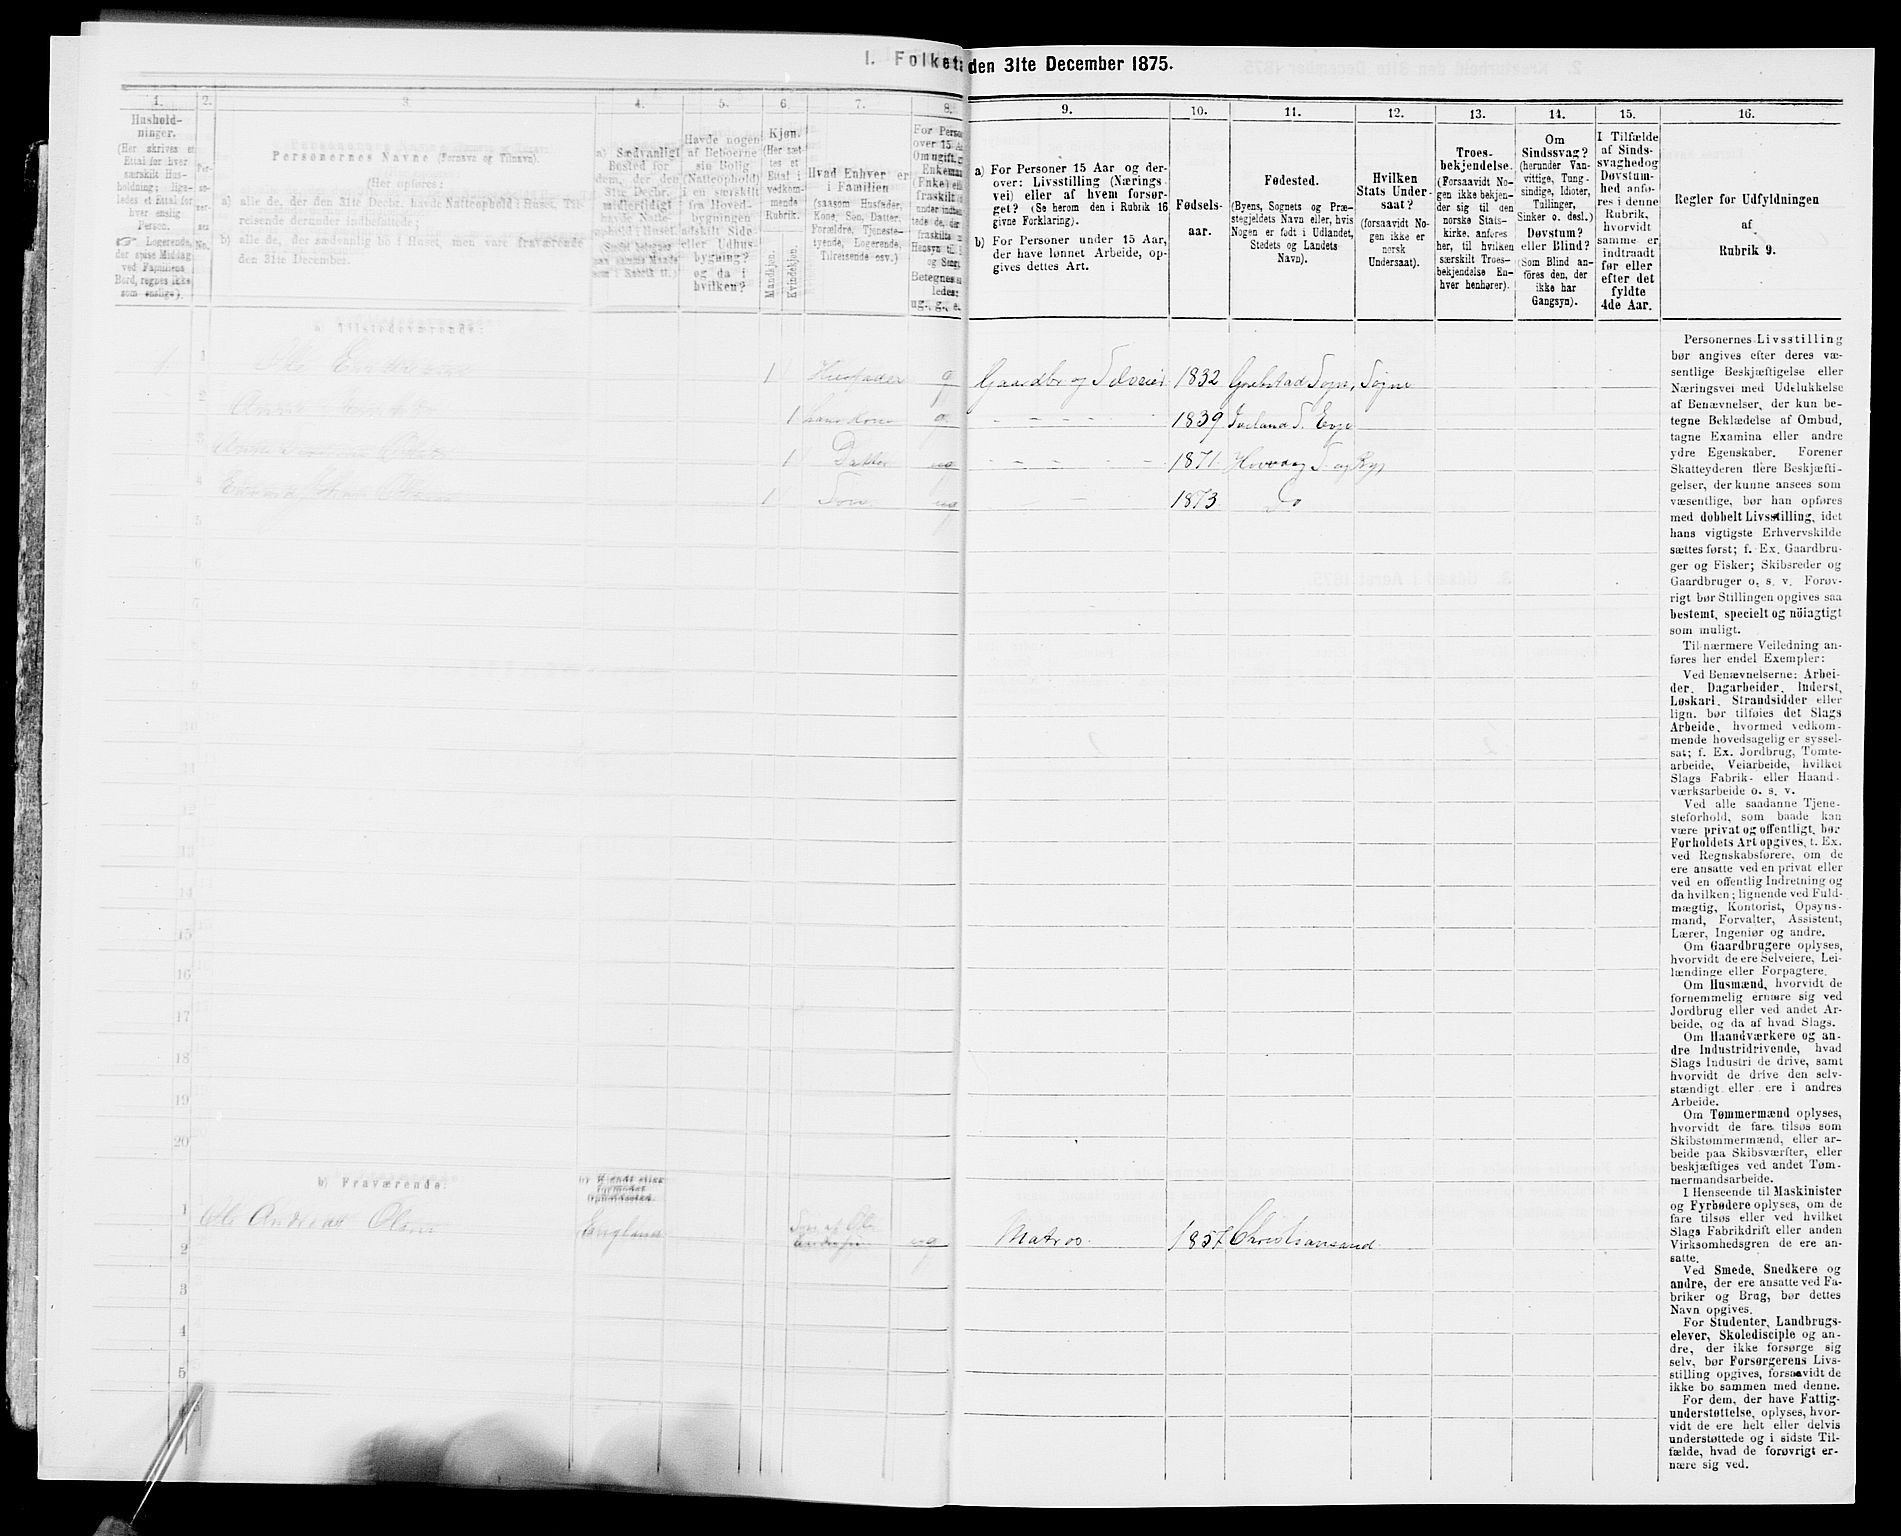 I. Folket den 31te December 1875.
1. 2. 3. 4. 5. 6. 7. 8. 9. 10. 11. 12. 13. 14. 15. 16.
Hushold-
ninger.
(Her skrives et
Ettal for hver
særskilt Hus-
holdning; lige-
ledes et Ettal for
hver enslig
Person.
☞ Logerende,
der spise Middag
ved Familiens
Bord, regnes ikke
som enslige).
Per-
so-
ner-
nes
No.
Personernes Navne (Fornavn og Tilnavn).
(Her opføres:
a) alle de, der den 31te Decbr. havde Natteophold i Huset, Til-
reisende derunder indbefattede;
b) alle de, der sædvanlig bo i Huset, men vare fraværende
den 31te December.
a) Sædvanligt
Bosted for
dem, der den
31te Decbr.
midlertidigt
havde Natte-
ophold i Huset.
Havde nogen
af Beboerne
sin Bolig
(Natteophold)
i en særskilt
fra Hoved-
bygningen
adskilt Side-
eller Udhus-
bygning?
og da i
hvilken?
Kjøn.
(Her sæt-
tes et
Ettal i
vedkom-
mende
Rubrik.
Mandkjøn.
Kvindekjøn.
Hvad Enhver er
i Familien
(saasom Husfader,
Kone, Søn, Datter,
Forældre, Tjeneste-
tyende, Logerende,
Tilreisende osv.)
For Perso
over 15 A
Om ugift, g
Enkeman
(Enke) el
fraskilt
Betegnes s
ledes:
ug., g., e.
a) For Personer 15 Aar og der-
over: Livsstilling (Nærings-
vei) eller af hvem forsør-
get? (Se herom den i Rubrik 16
givne Forklaring).
b) For Personer under 15 Aar,
der have lønnet Arbeide, op-
gives dettes Art.
Fødsels-
aar.
Fødested.
(Byens, Sognets og Præ-
stegjeldets Navn eller, hvis
Nogen er født i Udlandet,
Stedets og Landets
Navn).
Hvilken
Stats Under-
saat?
(forsaavidt No-
gen ikke er
norsk
Undersaat).
Troes-
bekjendelse.
(Forsaavidt No-
gen ikke bekjen-
der sig til den
norske Stats-
kirke, anføres
her, til hvilken
særskilt Troes-
bekjendelse En-
hver henhører).
Om
Sindssvag?
(herunder Van-
vittige, Tung-
sindige, Idioter,
Tullinger,
Sinker o. desl.)
Døvstum?
eller Blind?
(Som Blind an-
føres den, der
ikke har
Gangsyn).
I Tilfælde
af Sinds-
svaghed og
Døvstum-
hed anfø-
res i denne
Rubrik,
hvorvidt
samme er
indtraadt
før eller
efter det
fyldte
4de Aar.
Regler for Udfyldningen
af
Rubrik 9.
a) Tilstedeværende:
1 1 1 Husfader g Gaardbr og Selveier 1832 Sogn, Søgne
2 1 hans Kone g - - - 1839 Iveland S. Evje
3 1 Datter ug - - - - 1871. S. og
4 1 Søn ug - 1873 Do
5
6
7
8
9
10
11
12
13
14
15
16
17
18
19
20
b) Fraværende:
b) Kjendt eller
formodet
Opholdssted.
1 Ole Andreas Olsen England Søn af Ole ug Matros. 1857 Christiansand.
2
3
4
5
Personernes Livsstilling
bør angives efter deres væ-
sentlige Beskjæftigelse eller
Næringsvei med Udelukkelse
af Benævnelser, der kun be-
tegne Beklædelse af Ombud,
tagne Examina eller andre
ydre Egenskaber. Forener
Skatteyderen flere Beskjæfti-
gelser, der kunne ansees som
væsentlige, bør han opføres
med dobbelt Livsstilling, idet
hans vigtigste Erhvervskilde
sættes først; f. Ex. Gaardbru-
ger og Fisker; Skibsreder og
Gaardbruger o. s. v. Forøv-
rigt bør Stillingen opgives saa
bestemt, specielt og nöiagtigt
som muligt.
Til nærmere Veiledning an-
føres her endel Exempler:
Ved Benævnelserne: Arbei-
der, Dagarbeider, Inderst,
Løskarl, Strandsidder eller
lign. bør tilføies det Slags
Arbeide, hvormed vedkom-
mende hovedsagelig er syssel-
sat; f. Ex. Jordbrug, Tomte-
arbeide, Veiarbeide, hvilket
Slags Fabrik- eller Haand-
værksarbeide o. s. v.
Ved alle saadanne Tjene-
steforhold, som baade kan
være privat og offentligt, bør
Forholdets Art opgives, f. Ex.
ved Regnskabsførere, om de
ere ansatte ved en privat eller
ved en offentlig Indretning og
da hvilken; lignende ved Fuld-
mægtig, Kontorist, Opsyns-
mand, Forvalter, Assistent,
Lærer, Ingeniør og andre.
Om Gaardbrugere oplyses,
hvorvidt de ere Selveiere, Lei-
lændinge eller Forpagtere.
Om Husmænd, hvorvidt de
fornemmelig ernære sig ved
Jordbrug eller ved andet Ar-
beide, og da af hvad Slags.
Om Haandværkere og an-
dre Industridrivende, hvad
Slags Industri de drive, samt
hvorvidt de drive den selv-
stændigt eller ere i andres
Arbeide.
Om Tømmermænd oplyses,
hvorvidt de fare tilsøs som
Skibstømmermænd, eller ar-
beide paa Skibsværfter, eller
beskjæftiges ved andet Tøm-
mermandsarbeide.
I Henseende til Maskinister
og Fyrbødere oplyses, om de
fare tilsøs eller ved hvilket
Slags Fabrikdrift eller anden
Virksomhedsgren de ere an-
satte.
Ved Smede, Snedkere og
andre, der ere ansatte ved Fa-
briker og Brug, bør dettes
Navn opgives.
For Studenter, Landbrugs-
elever, Skoledisciple og an-
dre, der ikke forsørge sig
selv, bør Forsørgerens Livs-
stilling opgives, forsaavidt de
ikke bo sammen med denne.
For dem, der have Fattig-
understøttelse, oplyses, hvor-
vidt de ere helt eller delvis
understøttede og i sidste Til-
fælde, hvad de forøvrigt er-
nære sig ved.